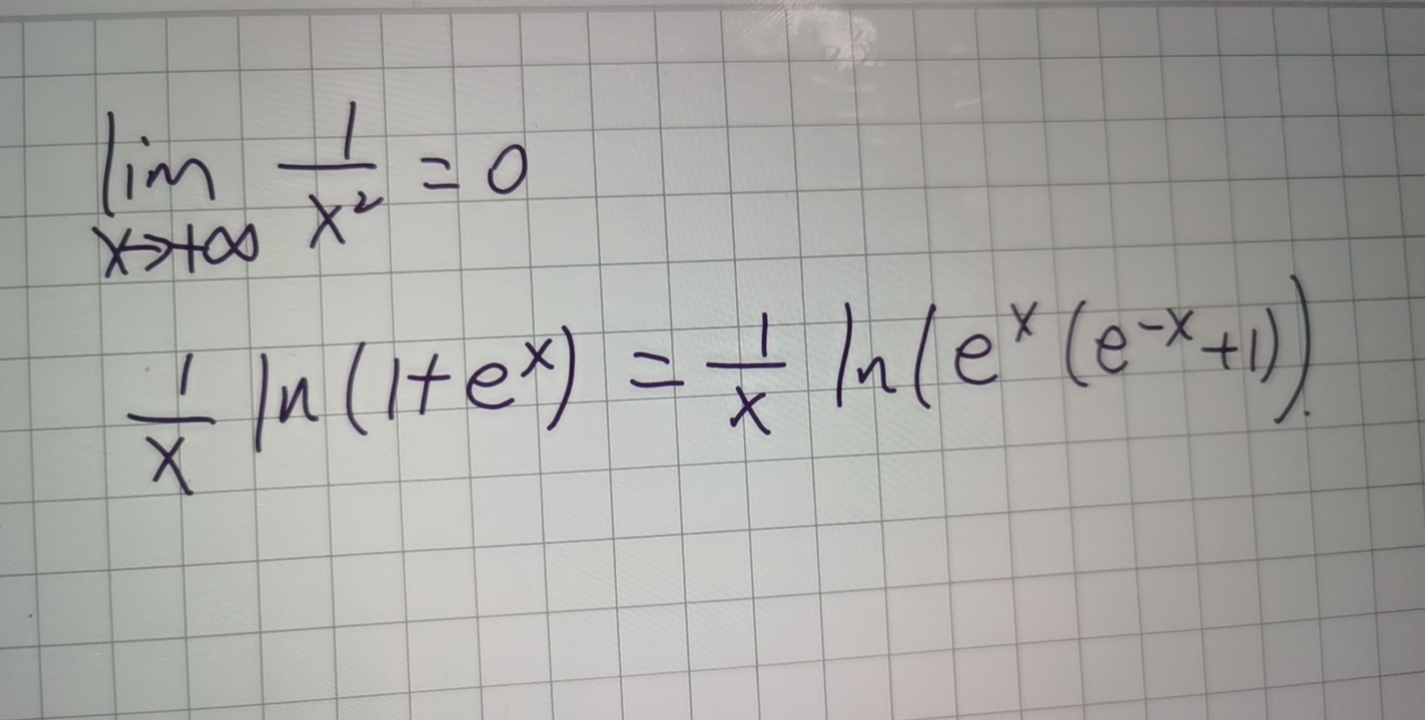 lim x→+∞ 1/x² = 0
1/x ln(1+eˣ) = 1/x ln(eˣ(e⁻ˣ+1)).